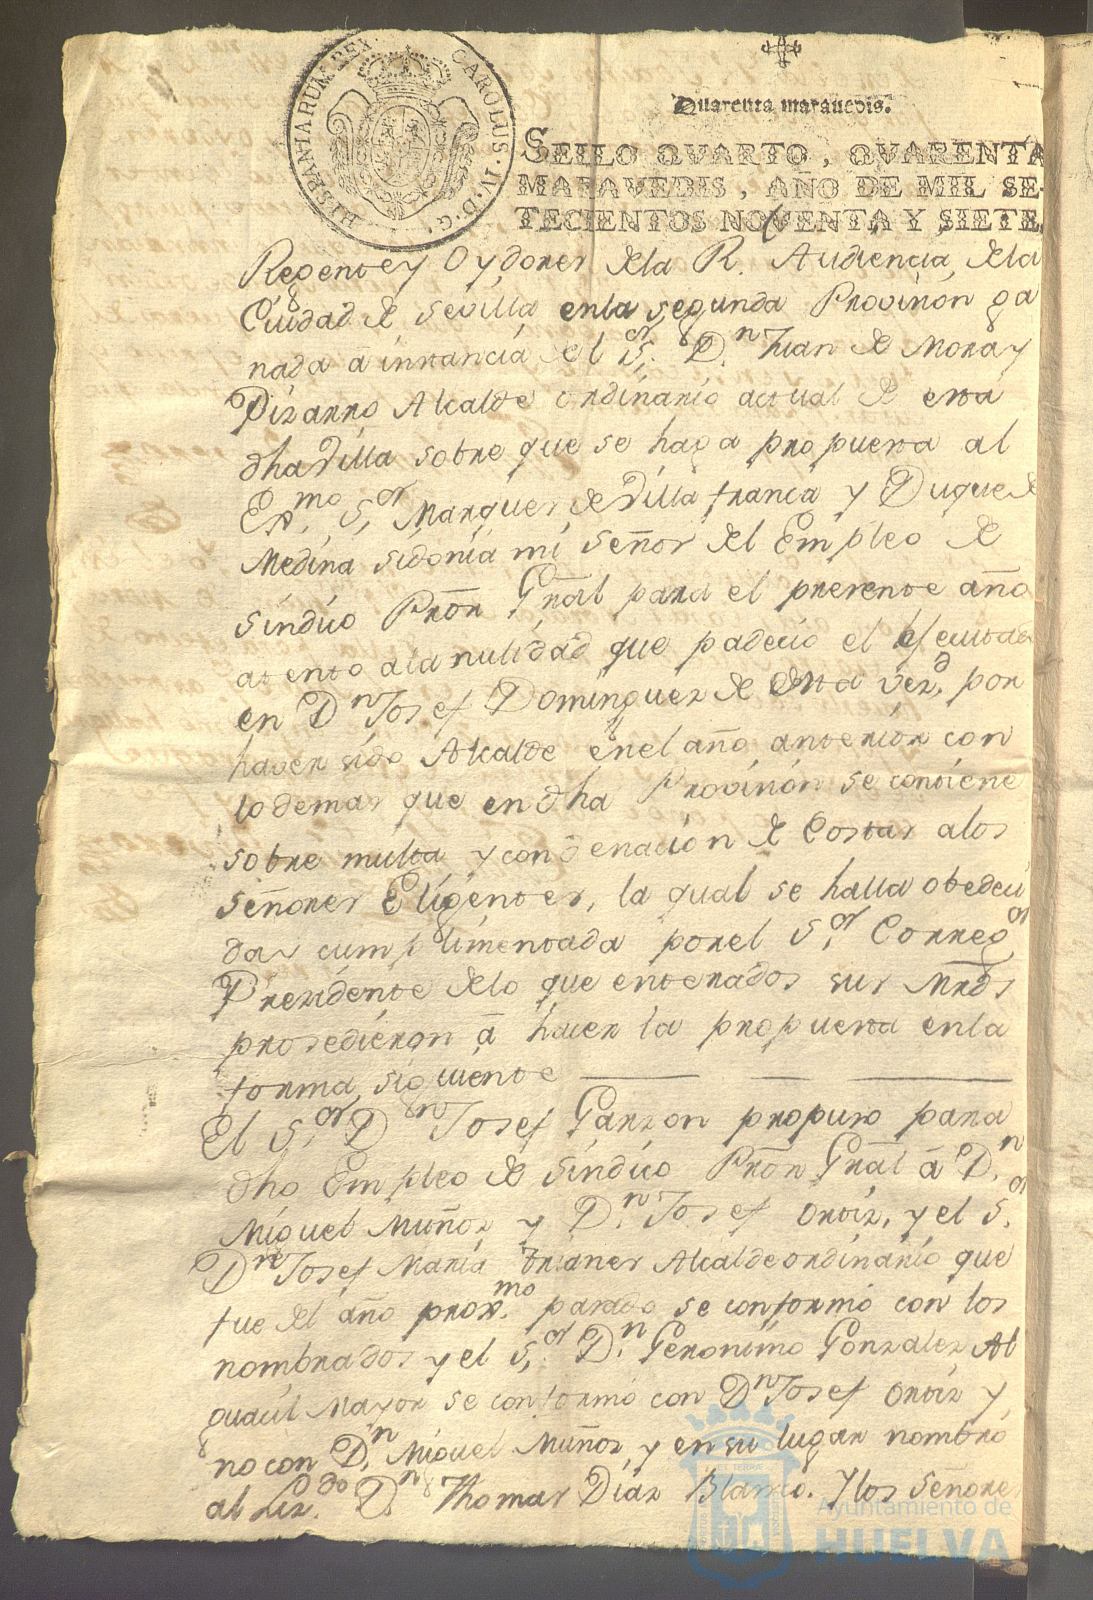 HISPANIARUM REX. CAROLUS · IV · D · G ·
Quarenta maravedis.
SELLO QVARTO, QVARENTA
MARAVEDIS, AÑO DE MIL SE-
TECIENTOS NOVENTA Y SIETE.
Regente y Oydores dela R. Audiencia, dela
Ciudad de Sevilla enla segunda Provision ga
nada á instancia del S.or D.n Juan de Mora y
Pizarro Alcalde ordinario actual de esta
dha Villa sobre que se haga propuesta al
Ex.mo S.or Marques de Villafranca y Duque de
Medina Sidonia mi señor del Empleo de
sindico Prōr Grāl para el presente año
atento ala nulidad que padecio el efectuado
en D.n Josef Dominguez de esta vez.d por
haver sido Alcalde enel año anterior con
lo demas que en dha Provision se contiene
sobre multa y condenacion de Costas alos
señores Eligentes, la qual se halla obedeci
da y cumplimentada porel S.or Correg.or
Presidente delo que enterados sus Mrds
prosedieron á hacer la propuesta enla
forma siguiente
El S.or D.n Josef Garzon propuso para
dho Empleo de Sindico Prōr Grāl á D.n
Miguel Muñoz y D.n Josef Ortiz, y el S.or
D.n Josef Maria Trianes Alcalde ordinario que
fue del año prox.mo pasado se conformó con los
nombrados y el S.or D.n Geronimo Gonzalez Al
guacil Mayor se conformó con D.n Josef Ortiz y
no con D.n Miguel Muñoz y en su lugar nombró
al Liz.do D.n Thomas Diaz Blanco. Y los Señores
Ayuntamiento de
HUELVA